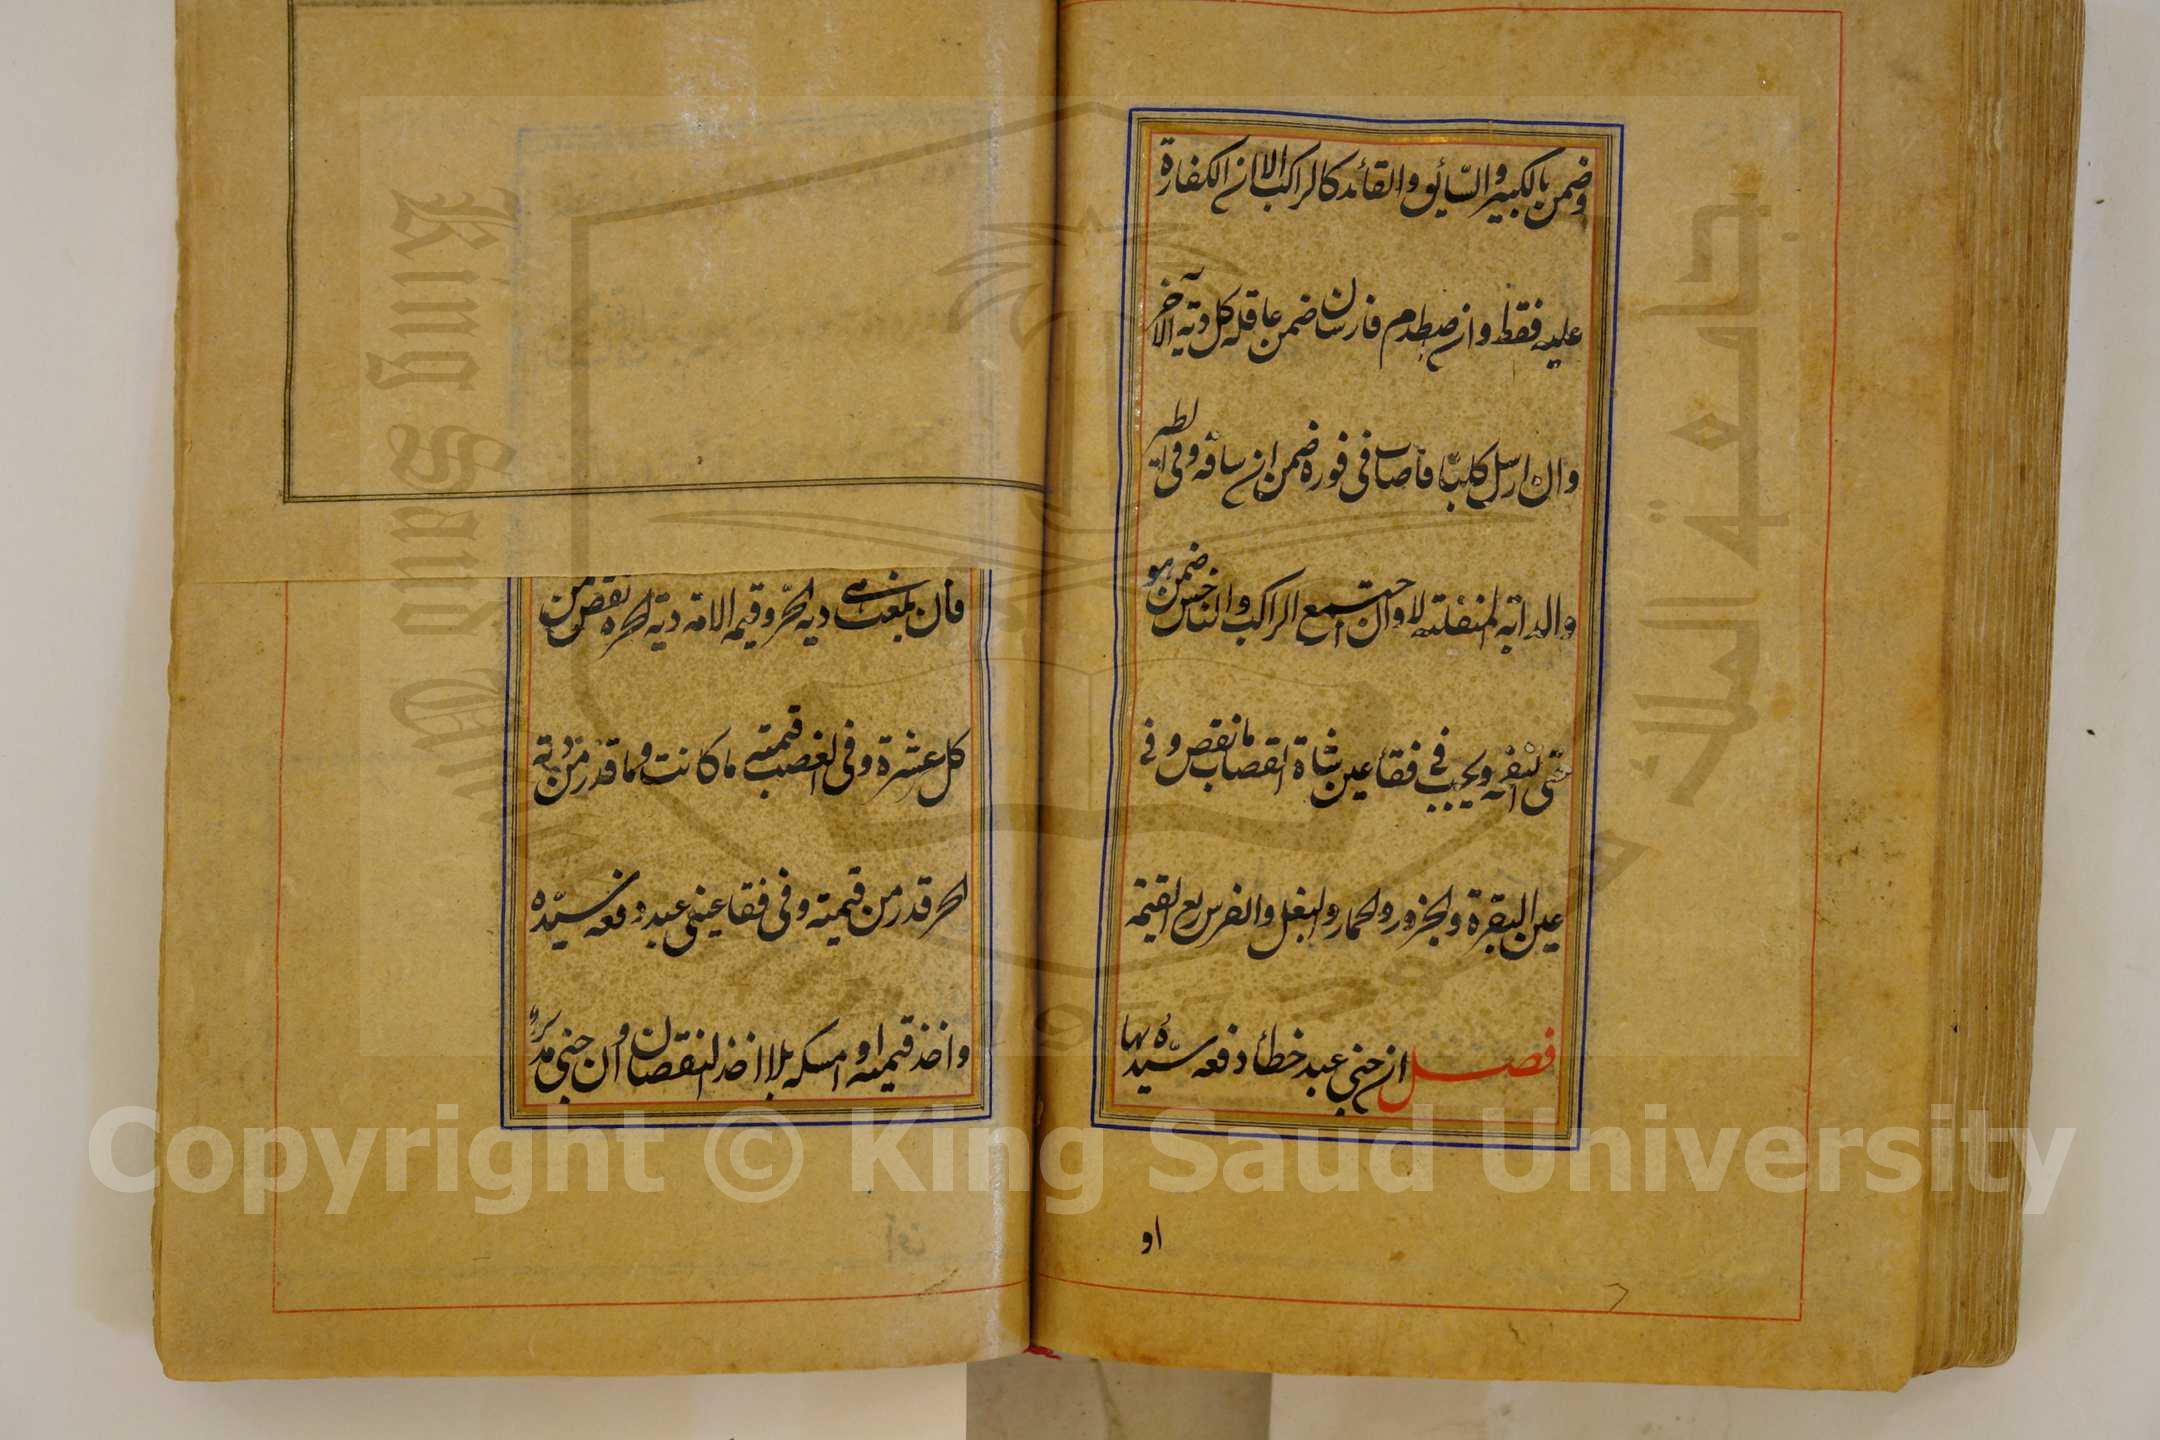 وضمن بالكبير والسّايق والقائد كالراكب الا ان الكفارة
عليه فقط وان صطدم فارسان ضمن عاقلة كل دية الآخر
وان ارسل كلبًا فاصاب فى فوره ضمن ان ساقه وفى الطير
والدابة المنفلتة لا وان اجتمع الراكب والناخس ضمن هو
حتى النفر ويجب فى فقأ عين شاة القصاب ما نقص وفى
عين البقرة والجزور والحمار والبغل والفرس ربع القيمة
فصل ان جنى عبد خطأ دفعه سيّده بها
او
فان بلغت هى دية الحرّ وقيمة الامة دية الحرة نقص من
كل عشرة وفى الغصب قيمته ما كانت وما قدر من دية
الحر قدر من قيمته وفى فقأ عينى عبد دفعه سيّده
واخذ قيمته او امسكه بلا اخذ النقصان وان جنى مدبر
King Saud University
جامعة الملك سعود
1957
Copyright © King Saud University